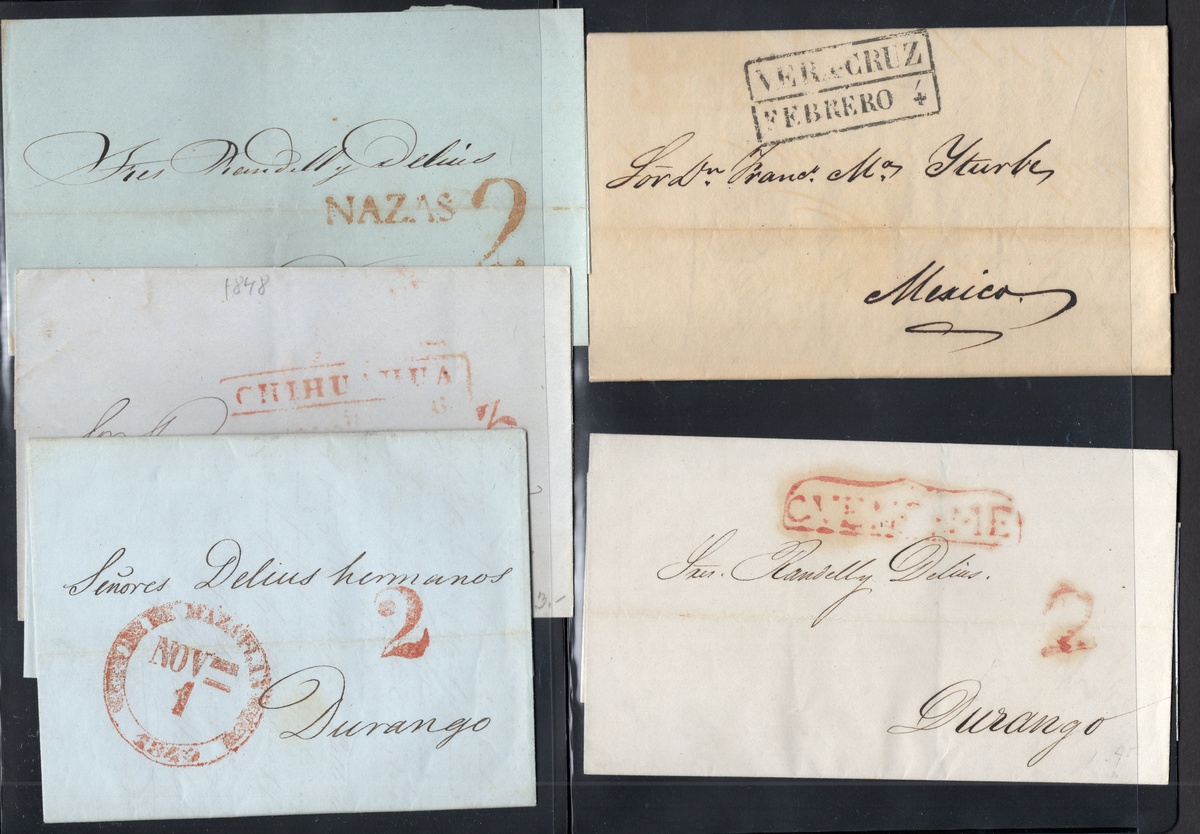 Sres Randell y Delius
NAZAS 2
1848
CHIHUAHUA
Señores Delius hermanos
2
DE MAZATLAN
NOV
1
Durango
3.-
VERA-CRUZ
FEBRERO 4
Sor Dn Franco Ma Yturbe
Mexico.
Sres. Randell y Delius.
2
Durango